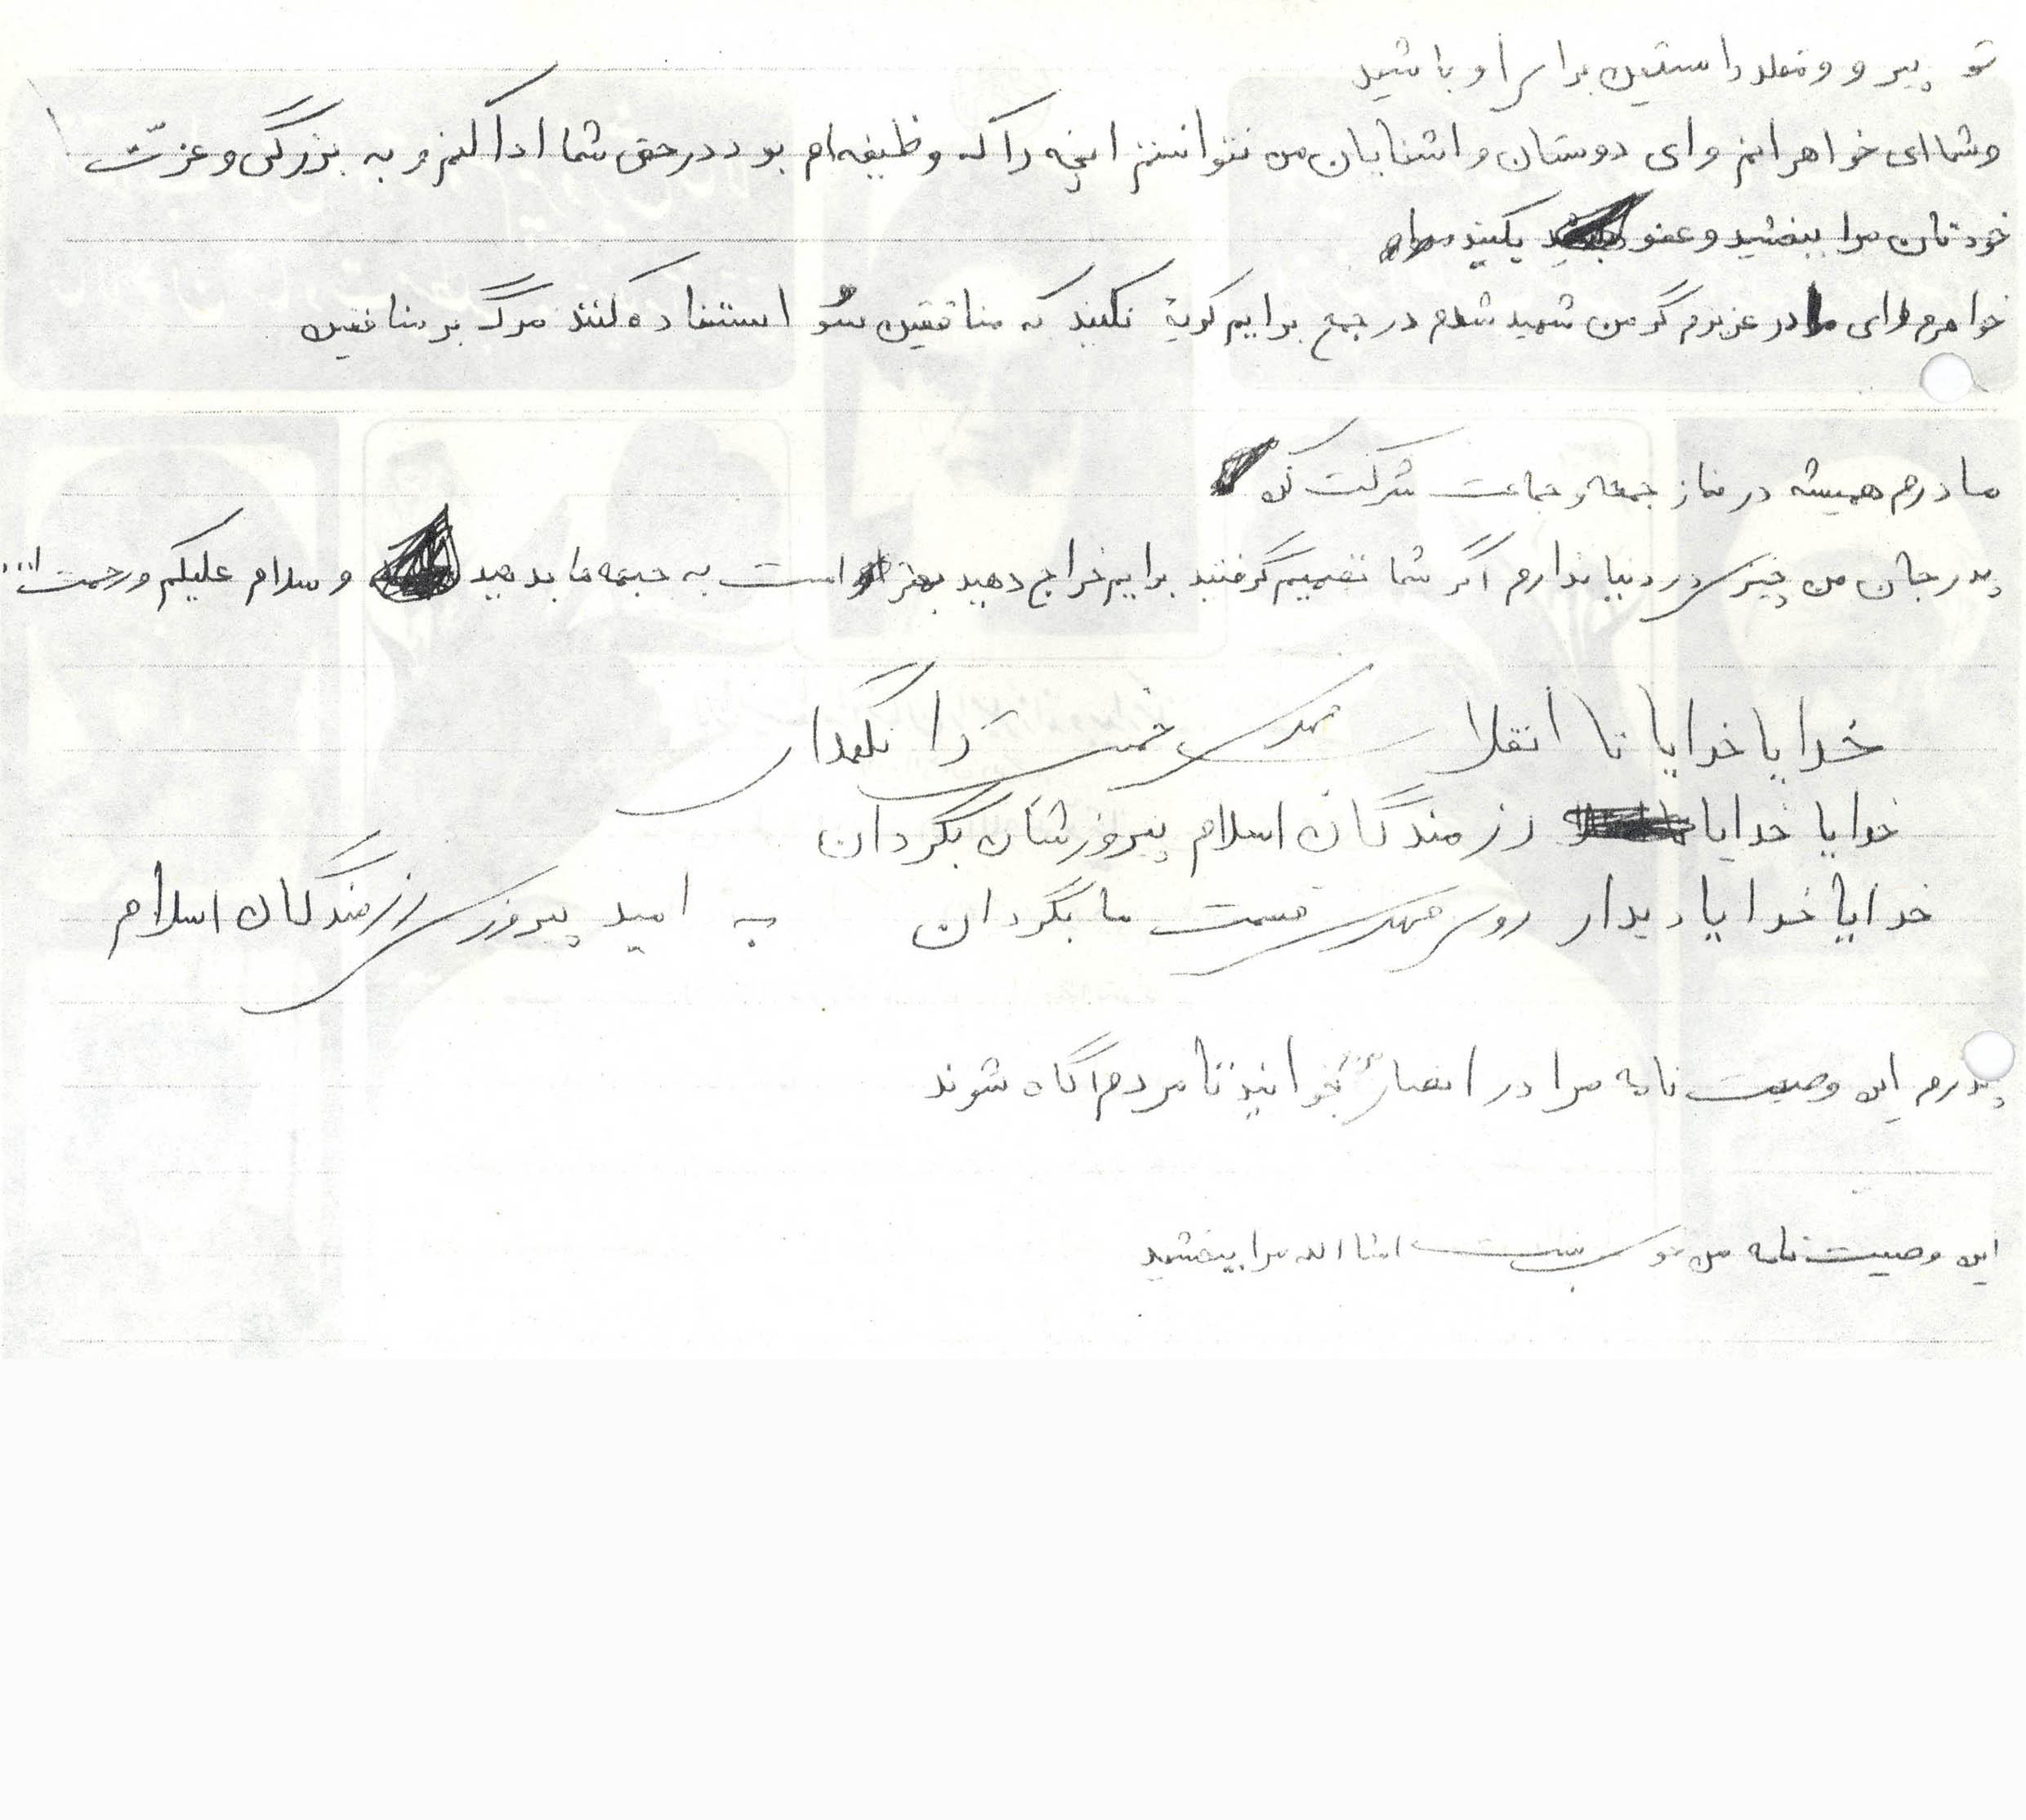 تو پیرو و مقلد راستین برای او باشید
و شما ای خواهرانم و ای دوستان و اشنایان من نتوانستم انچه را که وظیفه ام بود در حق شما ادا کنم و به بزرگی و عزّت
خودتان مرا ببخشید و عفو بکنید
خواهرم وای مادر عزیزم گر من شهید شدم در جمع برایم گریه نکنید که منافقین سُو استفاده کنند مرگ بر منافقین
مادرم همیشه در نماز جمعه و جماعت شرکت کن
پدر جان من چیزی در دنیا ندارم اگر شما تصمیم گرفتند برایم خراج دهید بهتر است به جبهه ها بدهید و سلام علیکم و رحمت ا...
خدایا خدایا تا انقلا مهدی خمینی را نگهدار
خدایا خدایا رزمندگان اسلام پیروزشان بگردان
خدایا خدایا دیدار روی مهدی قسمت ما بگردان به امید پیروزی رزمندگان اسلام
پدرم این وصیت نامه مرا در انصار بخوانید تا مردم اگاه شوند
این وصیت نامه من نیست انشا الله مرا ببخشید